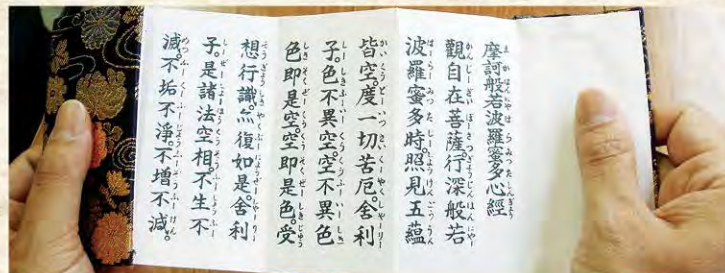 摩訶般若波羅蜜多心經
觀自在菩薩。行深般若
波羅蜜多時。照見五蘊
皆空。度一切苦厄。舍利
子。色不異空。空不異色
色即是空。空即是色。受
想行識。亦復如是。舍利
子。是諸法空相。不生不
滅。不垢不淨。不增不減。